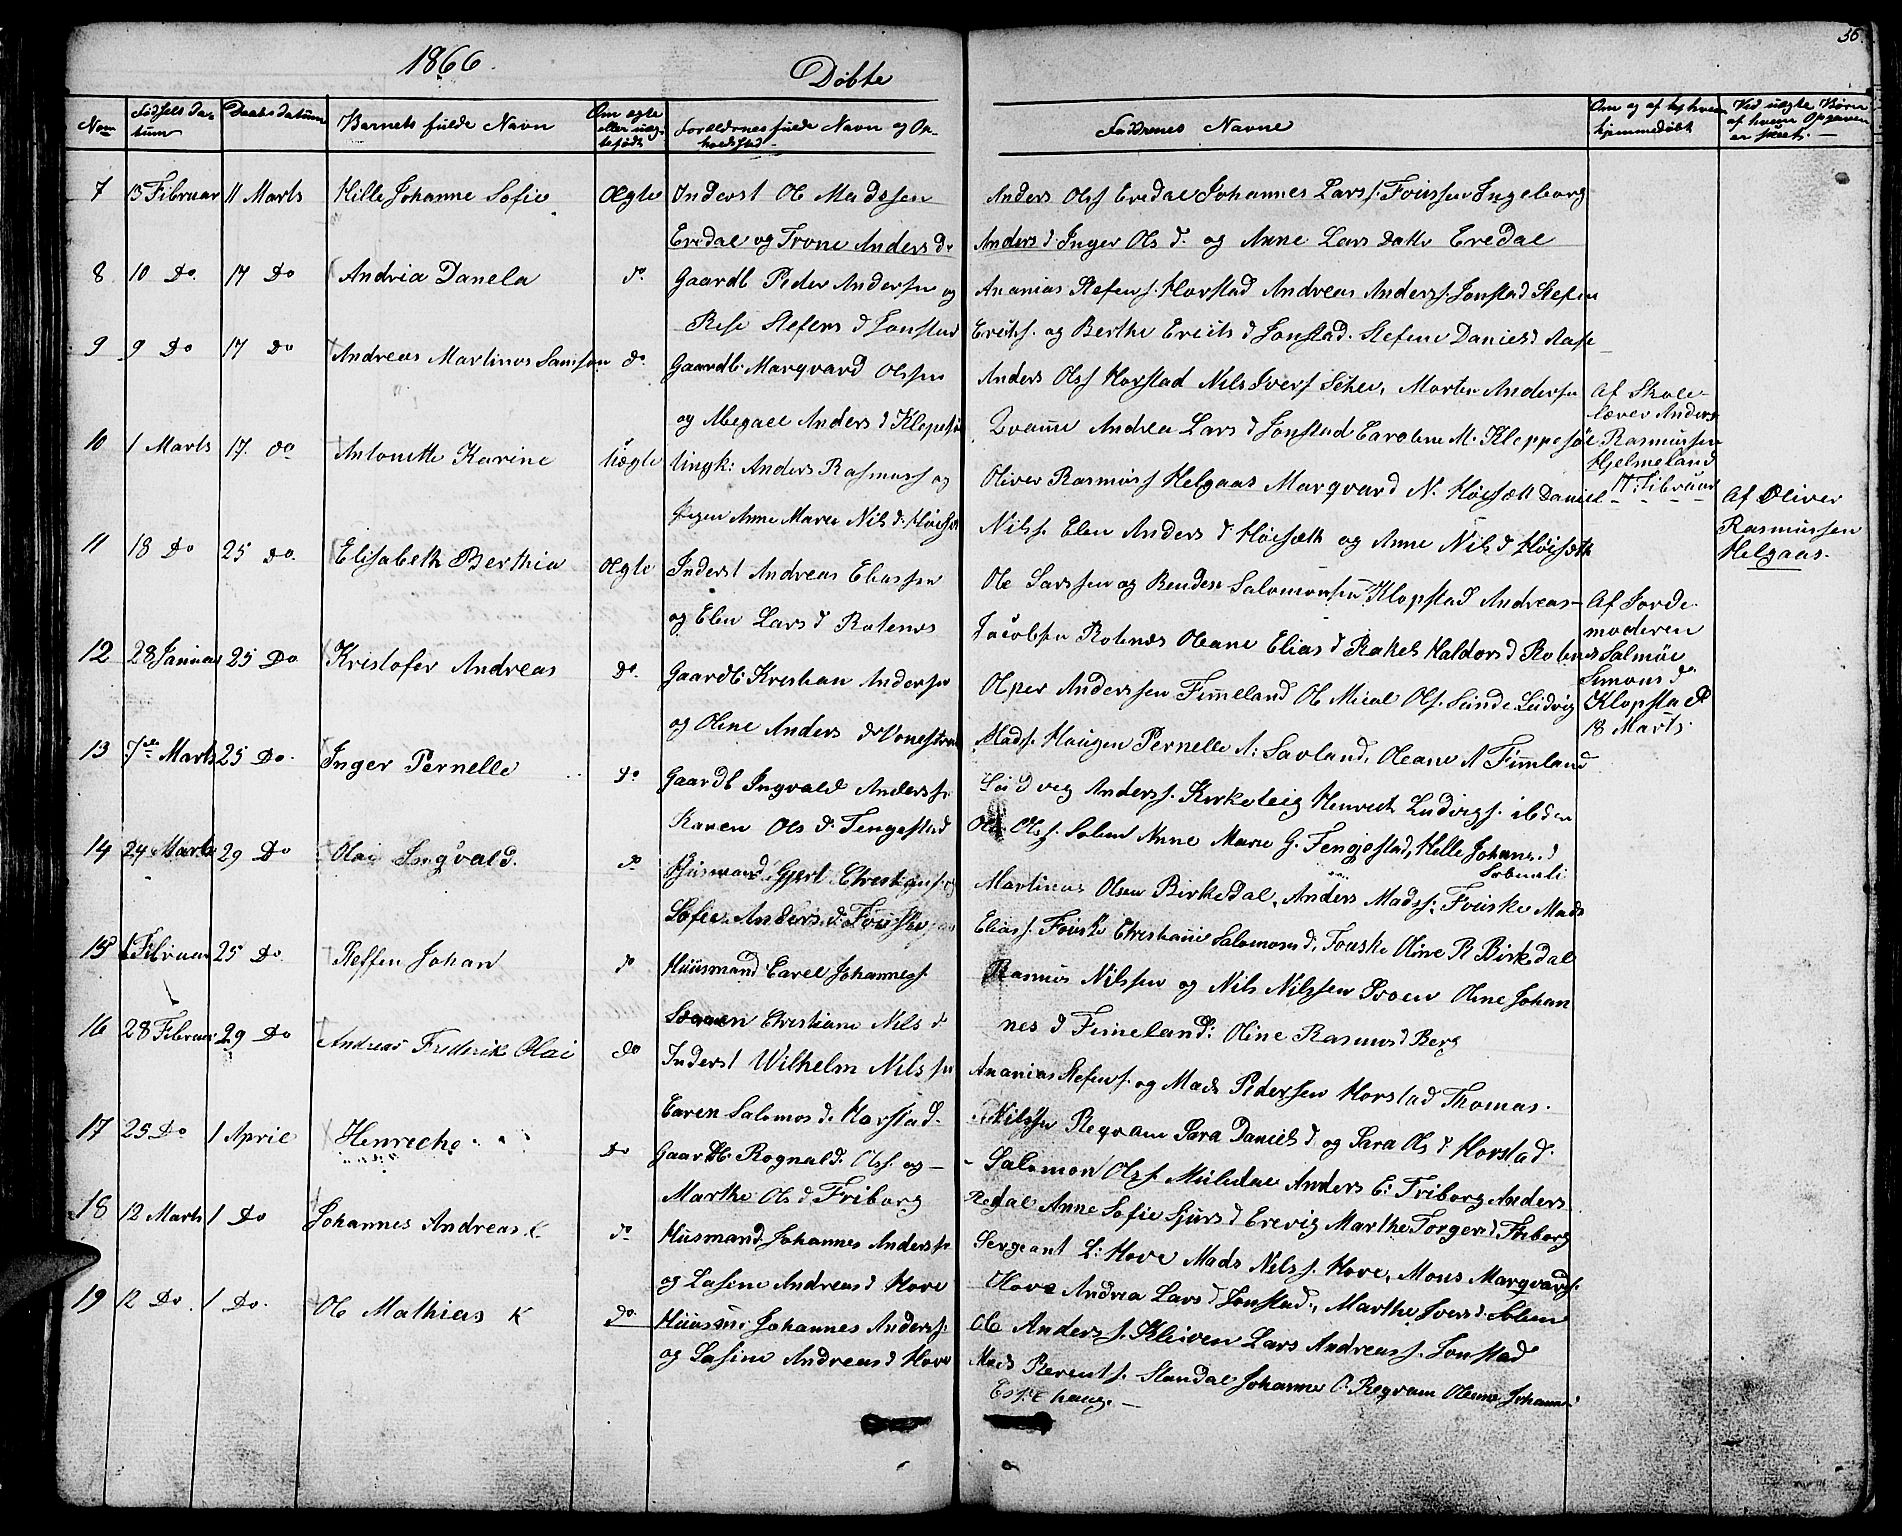 1866.
Døbte
36.
Nom
Fødsels da-
tum
Daabsdatum
Barnets fulde Navn
Om ægte
eller uæg-
tefødt
Forældrenes fulde Navn og Op-
holdsted
Faddrenes Navne
Om og af hvem
hjemmedøbt
Ved uægte Børn
af hvem Opgaven
er skeet.
7 13 Februar 11 Marts Hille Johanne Sofie Ægte Inderst Ole Madssen
Eredal og Trone Anders d.
Anders Olss Eredal Johannes Lars s. Ingeborg
Anders d Inger Ols d. og Anne Lars Datter Eredal
8 10 Do 17 Do Andria Danela do Gaardb Peder Andersen og
Stefens d Jonstad
Ananias Stefens. Horstad Andreas Anders s. Jonstad Stefen
Erichs. og Berthe Erichs d Jonstad. Stefene Daniels d Aase
9 9 Do 17 Do Andreas Martinus Samson do Gaardb. Marqvard Olsen
og Abegael Anders d
Anders Olss Horstad Nils Ivers Morten Andersen
Andrea Lars d Jonstad Caroline M. Kleppesøe
Af Skole-
lærer Anders
Rasmussen
Hjelmeland
17 Februar
10 1 Marts 17. do Antonette Karine Uægte Ungk: Anders Rasmuss og
Pigen Anne Marie Nils d.
Oliver Rasmuss Helgaas Marqvard N. Høisæth Daniel
Nilss. Elen Anders d Høisæth og Anne Nils d Høisæth
Af Oliver
Rasmussen
Helgaas.
11 18 Do 25 Do. Elisabeth Berthia Ægte Inderst Andreas Eliassen
og Elen Lars d Rotenes
Ole Larssen og Salomonsen Klopstad Andreas
Jacobsen Rotenes Oleane Elias d Rakel Haldors d
Af Jorde
moderen
Salmøe
Simons d
Klopstad
18 Marts.
12 28 Januar 25 Do Kristofer Andreas do. Gaardb: Krestian Andersen
og Oline Anders d
Anderssen Fimeland Ole Olss. Sunde Ludvig
Madss. Haugen Pernelle A: Savland, Oleane A Fimland
13 7de Marts 25 Do. Inger Pernelle do Gaardb Ingvald Anderss.
Karen Ols d. Tengestad
Ludvig Anderss. Kirkeleig Henrich Ludvigs. ibden
Ole Olss. Solem Anne Marie G. Tengestad, Helle Johans. d
14 24 Marts 29 Do Olai Ingvald. do Husmand Gjert
Sofie Anders. d.
Martinus Olsen Birkedal, Anders Madss. Mads
Eliass. Salomons d, Oline R Birkedal
15 Februar 25 Do. Steffen Johan do Huusmand Carel Johanness.
Christiane Nils d
Rasmus Nilssen og Nils Nilssen Oline Johan
nes d Fimeland: Oline Rasmus d Berg
16 28 Februar 29 Do Andreas Frederik Olai do Inderst Wilhelm Nilssen
Caren Salomos d. Horstad.
Ananias Stefens. og Mads Pedersen Horstad Thomas.
Nilssen Reqvam Sara Daniels d og Sara Ols d Horstad.
17 25 Do 1 April Henreche do Gaardb: Rognald. Olss. og
Marthe Ols d Friborg
Salomon Olss. Anders E: Friborg Anders
Anne Sofie Sjurs d Erevig Marthe Torgers d Friborg
18 12 Marts 1 Do Johannes Andreas K do Husmand Johannes Andersen
og Lasine Andreas d Hove
Sergeant L: Hove Mads Nils s. Hove, Mons Marqvards.
Hove Andrea Lars d Jonstad, Marthe Ivers d Solem
19 12 Do. 1 Do. Ole Mathias K do. Huusm: Johannes Anderss.
og Lasine Andreas d Hove
Ole Anders s. Kleiven Lars Andreas s. Jonstad
Mads Berents. Standal Johanne O. Reqvam Johannes
Espehaug.